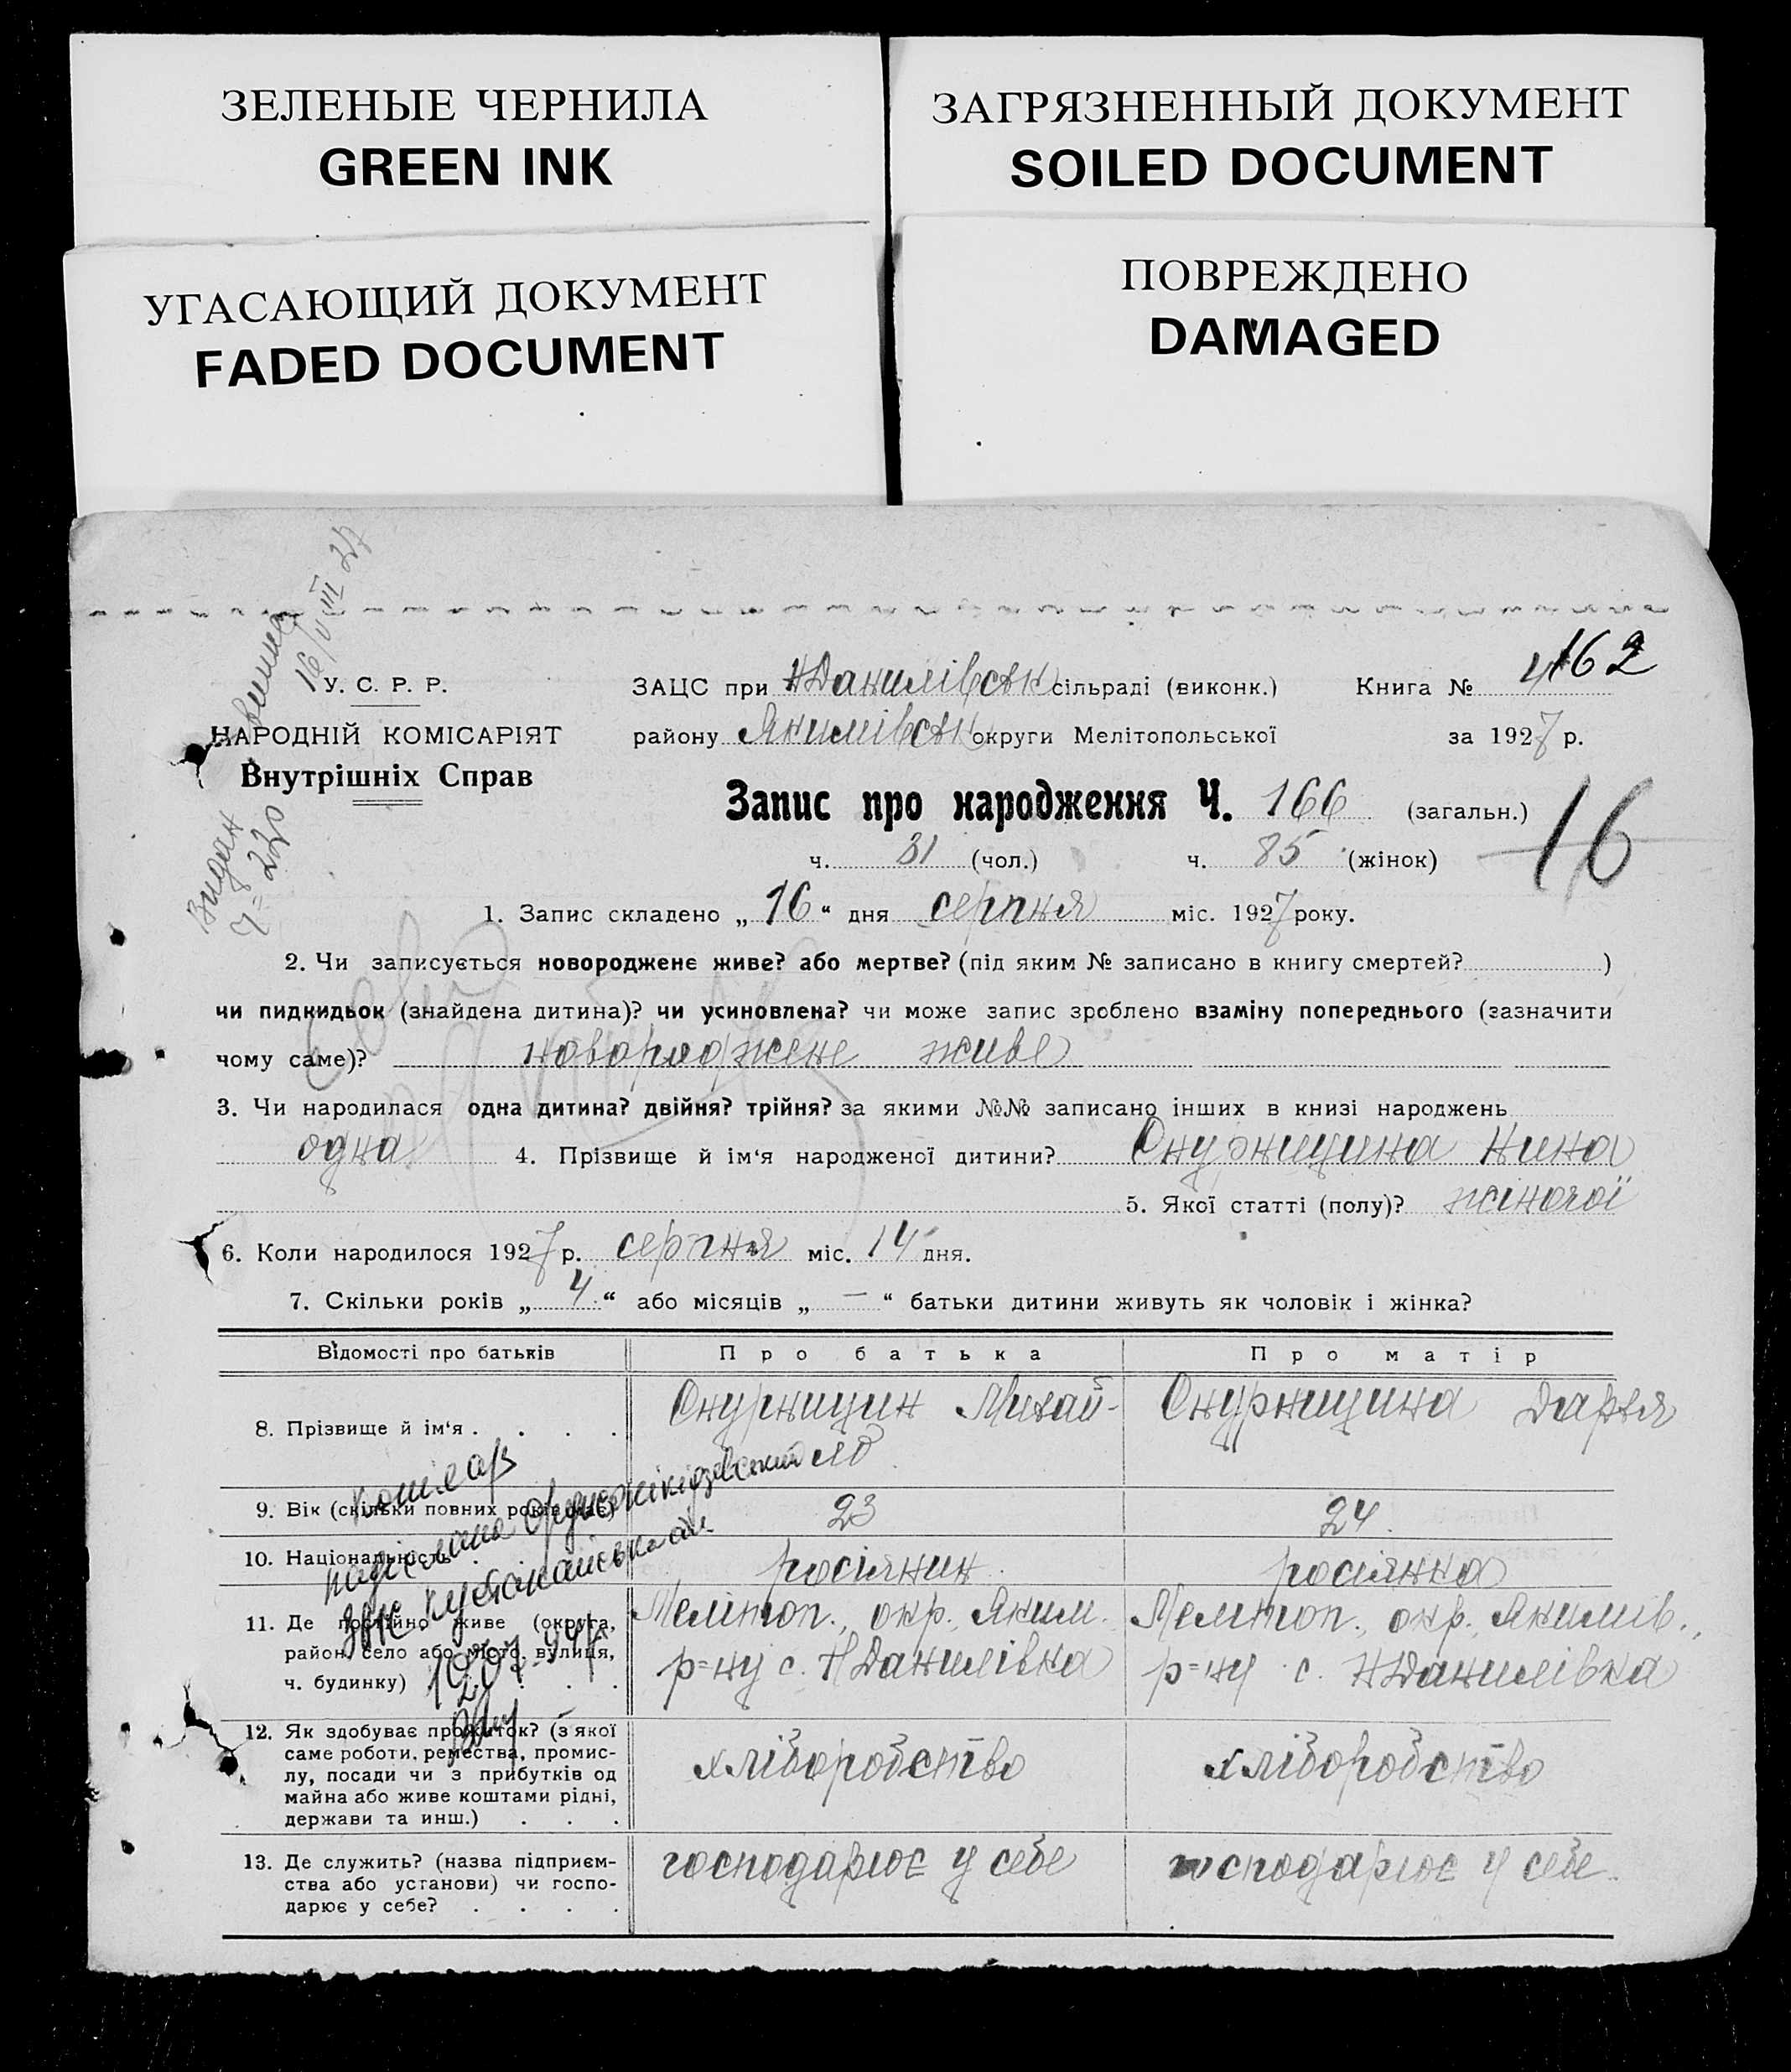 ЗЕЛЕНЫЕ ЧЕРНИЛА
GREEN INK
ЗАГРЯЗНЕННЫЙ ДОКУМЕНТ
SOILED DOCUMENT
УГАСАЮЩИЙ ДОКУМЕНТ
FADED DOCUMENT
ПОВРЕЖДЕНО
DAMAGED
16/VIII 27
У. С. Р. Р.
НАРОДНІЙ КОМІСАРІЯТ
Внутрішніх Справ
ЗАЦС при НДанилівськ сільраді (виконк.) Книга № 4162
району Якимівськ округи Мелітопольської за 1927 р.
Запис про народження Ч. 166 (загальн.)
16
ч. 81 (чол.) ч. 85 (жінок)
1. Запис складено „16“ дня серпня міс. 1927 року.
2. Чи записується новороджене живе? або мертве? (під яким № записано в книгу смертей? )
чи пидкидьок (знайдена дитина)? чи усиновлена? чи може запис зроблено взаміну попереднього (зазначити
чому саме)? новороджене живе
3. Чи народилася одна дитина? двійня? трійня? за якими №№ записано інших в книзі народжень
одна 4. Прізвище й ім‘я народженої дитини? Снурницина Нина
5. Якої статті (полу)? жіночої
6. Коли народилося 1927 р. серпня міс. 14 дня.
7. Скільки років „4“ або місяців „—“ батьки дитини живуть як чоловік і жінка?
Відомості про батьків Про батька Про матір
8. Прізвище й ім‘я . . . . Снурницин Михай-ло Снурницина Дарья
9. Вік (скільки повних років має) 23 24
10. Національність росіянин росіянка
11. Де постійно живе (округа,
район, село або місто, вулиця,
ч. будинку) . . .
Меліт​оп., окр., Яким.
р=ну с. НДанилівка
Мелітоп., окр., Якимів.,
р=ну с. НДанилівка
12. Як здобуває прожиток? (з якої
саме роботи, ремества, промис-
лу, посади чи з прибутків од
майна або живе коштами рідні,
держави та инш.) . . .
хліборобство хліборобство
13. Де служить? (назва підприєм-
ства або установи) чи госпо-
дарює у себе? . . . .
господарює у себе господарює у себе